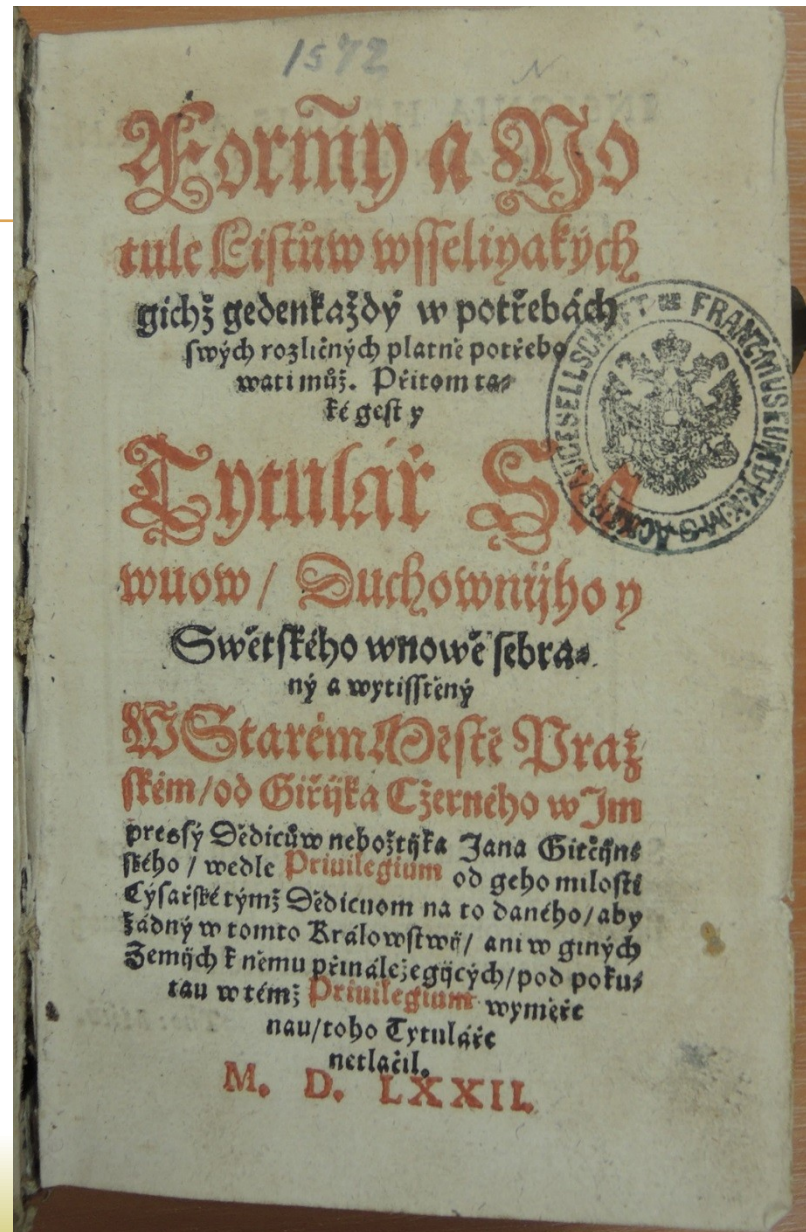 1572
Formy a No
tule Listůw wsselijakých
gichž gedenkaždý w potřebách
swých rozličných platně potřebo
wati můž. Přitom ta⸗
ké gest y
Tytulář Sta
wuow / Duchownijho y
Swětského wnowě sebra⸗
ný a wytisstěný
W Starém Městě Praž
ském / od Giřijka Cžerného w Im
pressý Dědicůw nebožtijka Jana Gitčijns⸗
ského / wedle Priuilegium od geho milosti
Cýsařské týmž Dědicuom na to daného / aby
žádný w tomto Králowstwij / ani w giných
Zemijch k němu přináležegijcých / pod poku⸗
tau w témž Priuilegium wyměře
nau / toho Tytuláře
netlačil.
M. D. LXXII.
FRANC MUSEUM D.K.K.M.S. ACKERBAUGESELLSCHAFT